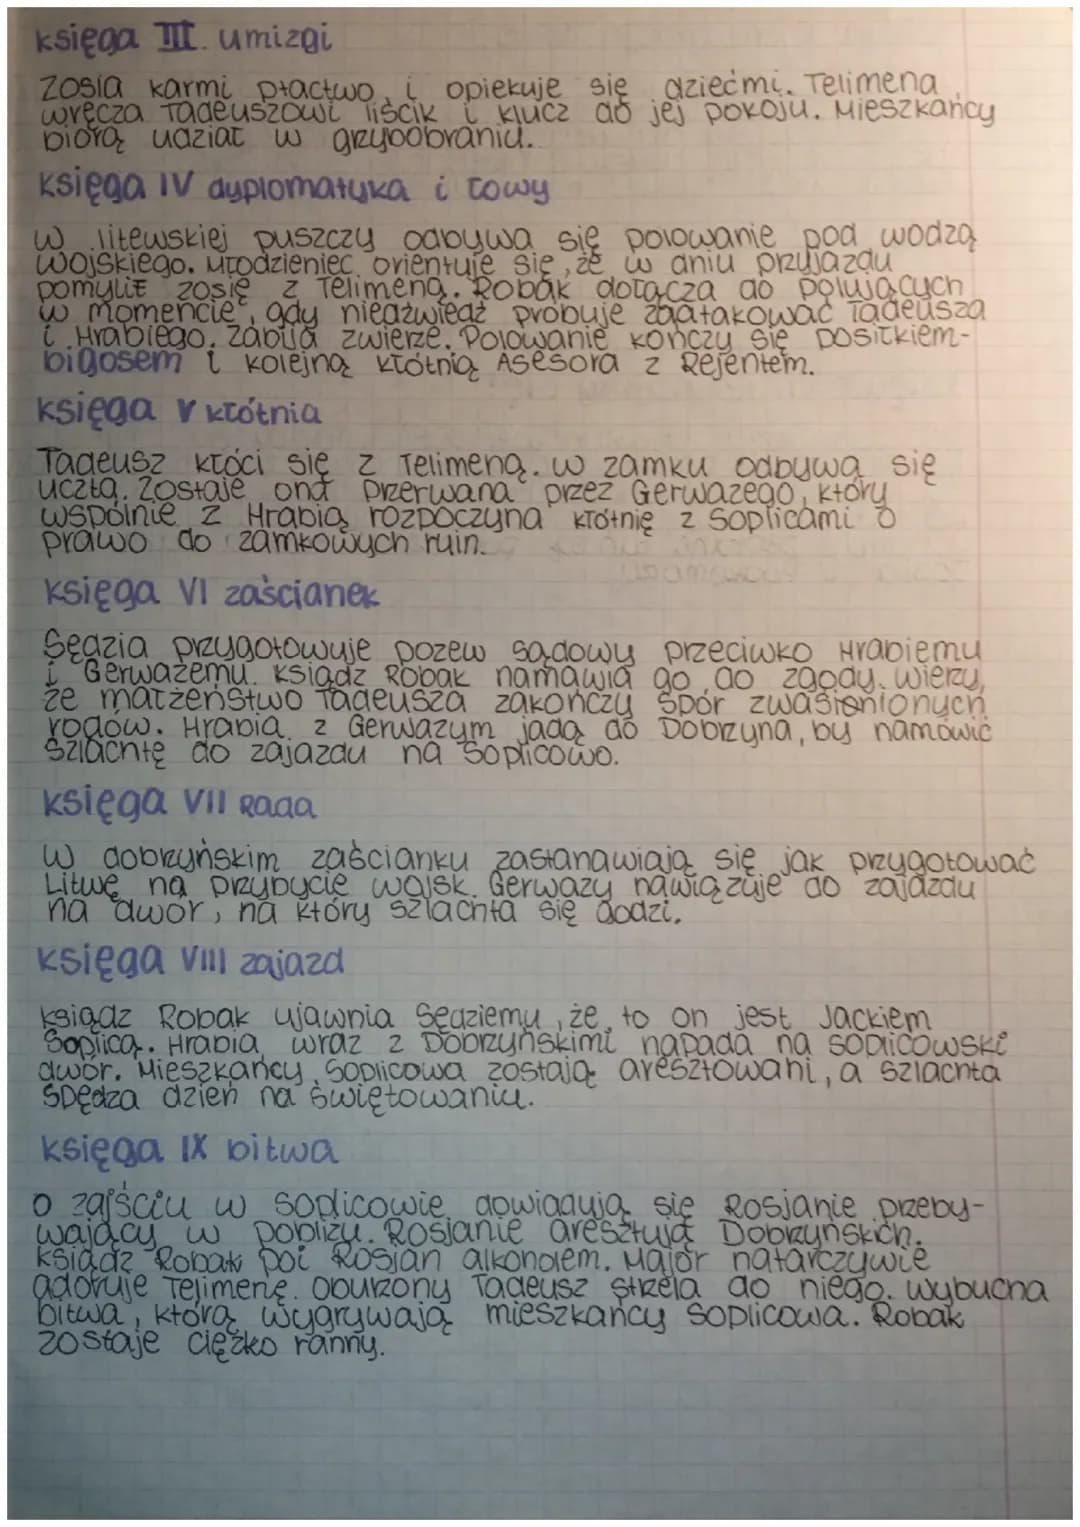 księga III. umizgi
Zosia karmi ptactwo i opiekuje się dziećmi. Telimena
wręcza Tadeuszowi liścik i klucz do jej pokoju. Mieszkańcy
biorą udział w grzybobraniu.
księga IV dyplomatyka i łowy
W litewskiej puszczy odbywa się polowanie pod wodzą
Wojskiego. Młodzieniec orientuje się, że w dniu przyjazdu
pomylił Zosię z Telimeną. Robak dołącza do polujących
w momencie, gdy niedźwiedź próbuje zaatakować Tadeusza
i Hrabiego. Zabija zwierze. Polowanie kończy się posiłkiem-
bigosem i kolejną kłótnią Asesora z Rejentem.
księga V kłótnia
Tadeusz kłóci się z Telimeną. W zamku odbywa się
uczta. Zostaje ona przerwana przez Gerwazego, który
wspólnie z Hrabią rozpoczyna kłótnię z Soplicami o
prawo do zamkowych ruin.
księga VI zaścianek
Sędzia przygotowuje pozew sądowy przeciwko Hrabiemu
i Gerwazemu. Ksiądz Robak namawia go do zgody. Wierzy,
że małżeństwo Tadeusza zakończy spór zwaśnionych
rodów. Hrabia z Gerwazym jadą do Dobrzyna, by namówić
szlachtę do zajazdu na Soplicowo.
księga VII Rada
W dobrzyńskim zaścianku zastanawiają się jak przygotować
Litwę na przybycie wojsk. Gerwazy nawiązuje do zajazdu
na dwór, na który szlachta się godzi.
księga VIII zajazd
Ksiądz Robak ujawnia Sędziemu, że to on jest Jackiem
Soplicą. Hrabia wraz z Dobrzyńskimi napada na soplicowski
dwór. Mieszkańcy Soplicowa zostają aresztowani, a szlachta
spędza dzień na świętowaniu.
księga IX bitwa
O zajściu w Soplicowie dowiadują się Rosjanie przeby-
wający w pobliżu. Rosjanie aresztują Dobrzyńskich.
Ksiądz Robak poi Rosjan alkoholem. Major natarczywie
adoruje Telimenę. Oburzony Tadeusz strzela do niego. Wybucha
bitwa, którą wygrywają mieszkańcy Soplicowa. Robak
zostaje ciężko ranny.